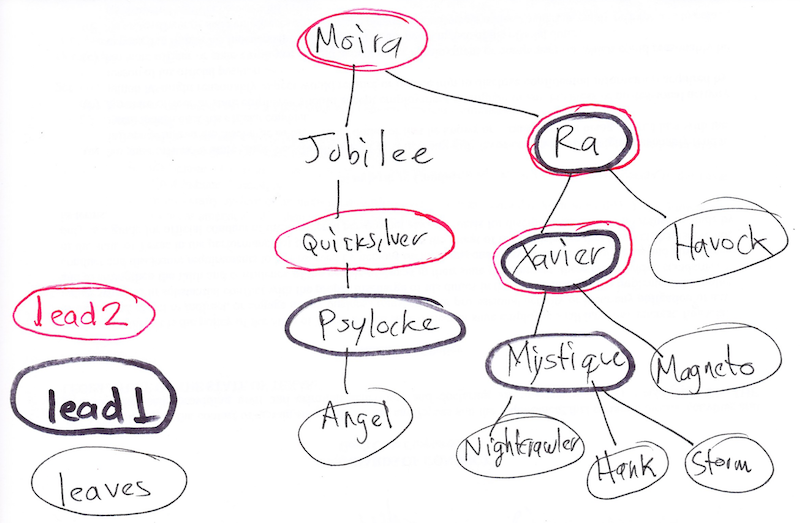 Moira
Jubilee
Ra
Quicksilver
Xavier
Havock
lead2
Psylocke
Mystique
Magneto
lead1
Angel
Nightcrawler
Hank
Storm
leaves